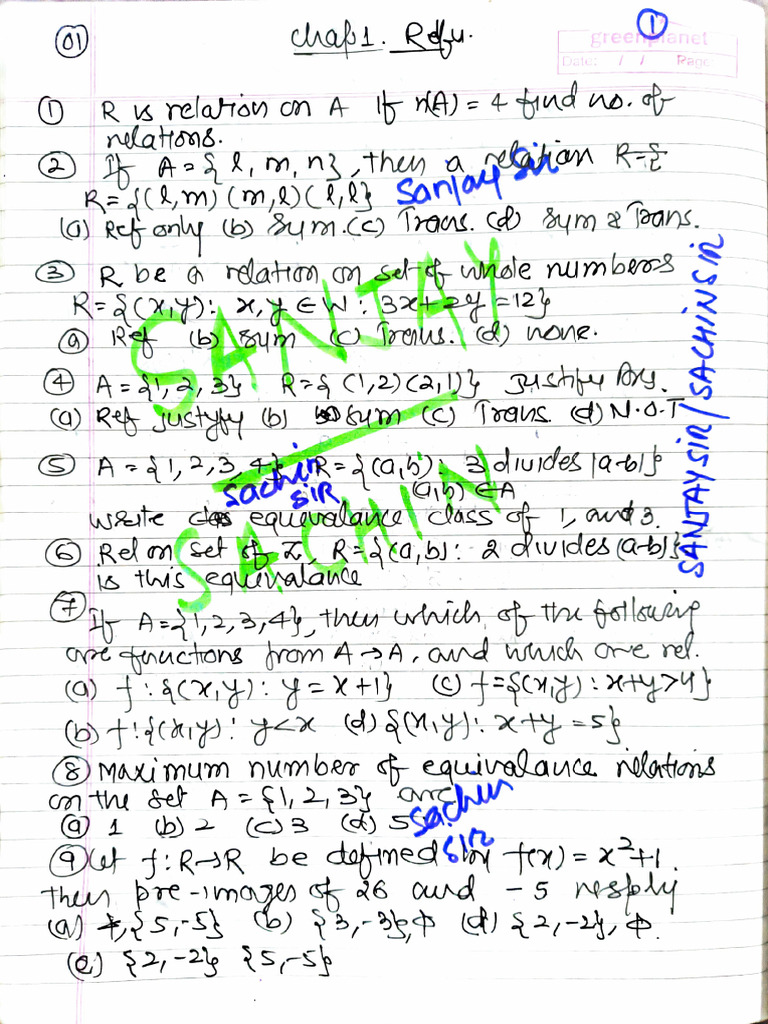 01 Chap 1. Refu. 1
greenplanet
Date: / / Page
① R is relation on A If n(A) = 4 find no. of
relations.
② If A = {l, m, n}, then a relation R={
R = {(l,m) (m,l) (l,l)} Sanjay Sir
(a) Ref only (b) Sym. (c) Trans. (d) Sym & Trans.
③ R be a relation on set of whole numbers
R = {(x,y): x,y ∈ W : 3x+2y =12}
(a) Ref (b) Sym (c) Trans. (d) none.
SANJAY
④ A = {1,2,3} R = { (1,2) (2,1)} justify Ans.
(a) Ref justyfy (b) sym (c) Trans. (d) N.O.T
⑤ A = {1,2,3,4} R = {(a,b): 3 divides |a-b|}
Sachin SIR (a,b) ∈ A
write equivalance class of 1, and 3.
SACHIN
⑥ Rel on set of Z, R={(a,b): 2 divides (a-b)}
is this equivalance
SANJAY SIR / SACHIN SIR
⑦ If A = {1,2,3,4}, then which of the following
are functions from A → A, and which are rel.
(a) f : {(x,y): y = x+1} (c) f={(x,y) : x+y>4}
(b) f:{(x,y): y<x (d) {(x,y): x+y =5}
⑧ Maximum number of equivalance relations
on the set A = {1,2,3} are
(a) 1 (b) 2 (c) 3 (d) 5 Sachin
SIR
⑨ let f: R→R be defined by f(x) = x²+1
then pre-images of 26 and -5 resply
(a) {5,-5} (b) {3,-3}, φ (d) {2,-2}, φ.
(c) {2,-2} {5,-5}